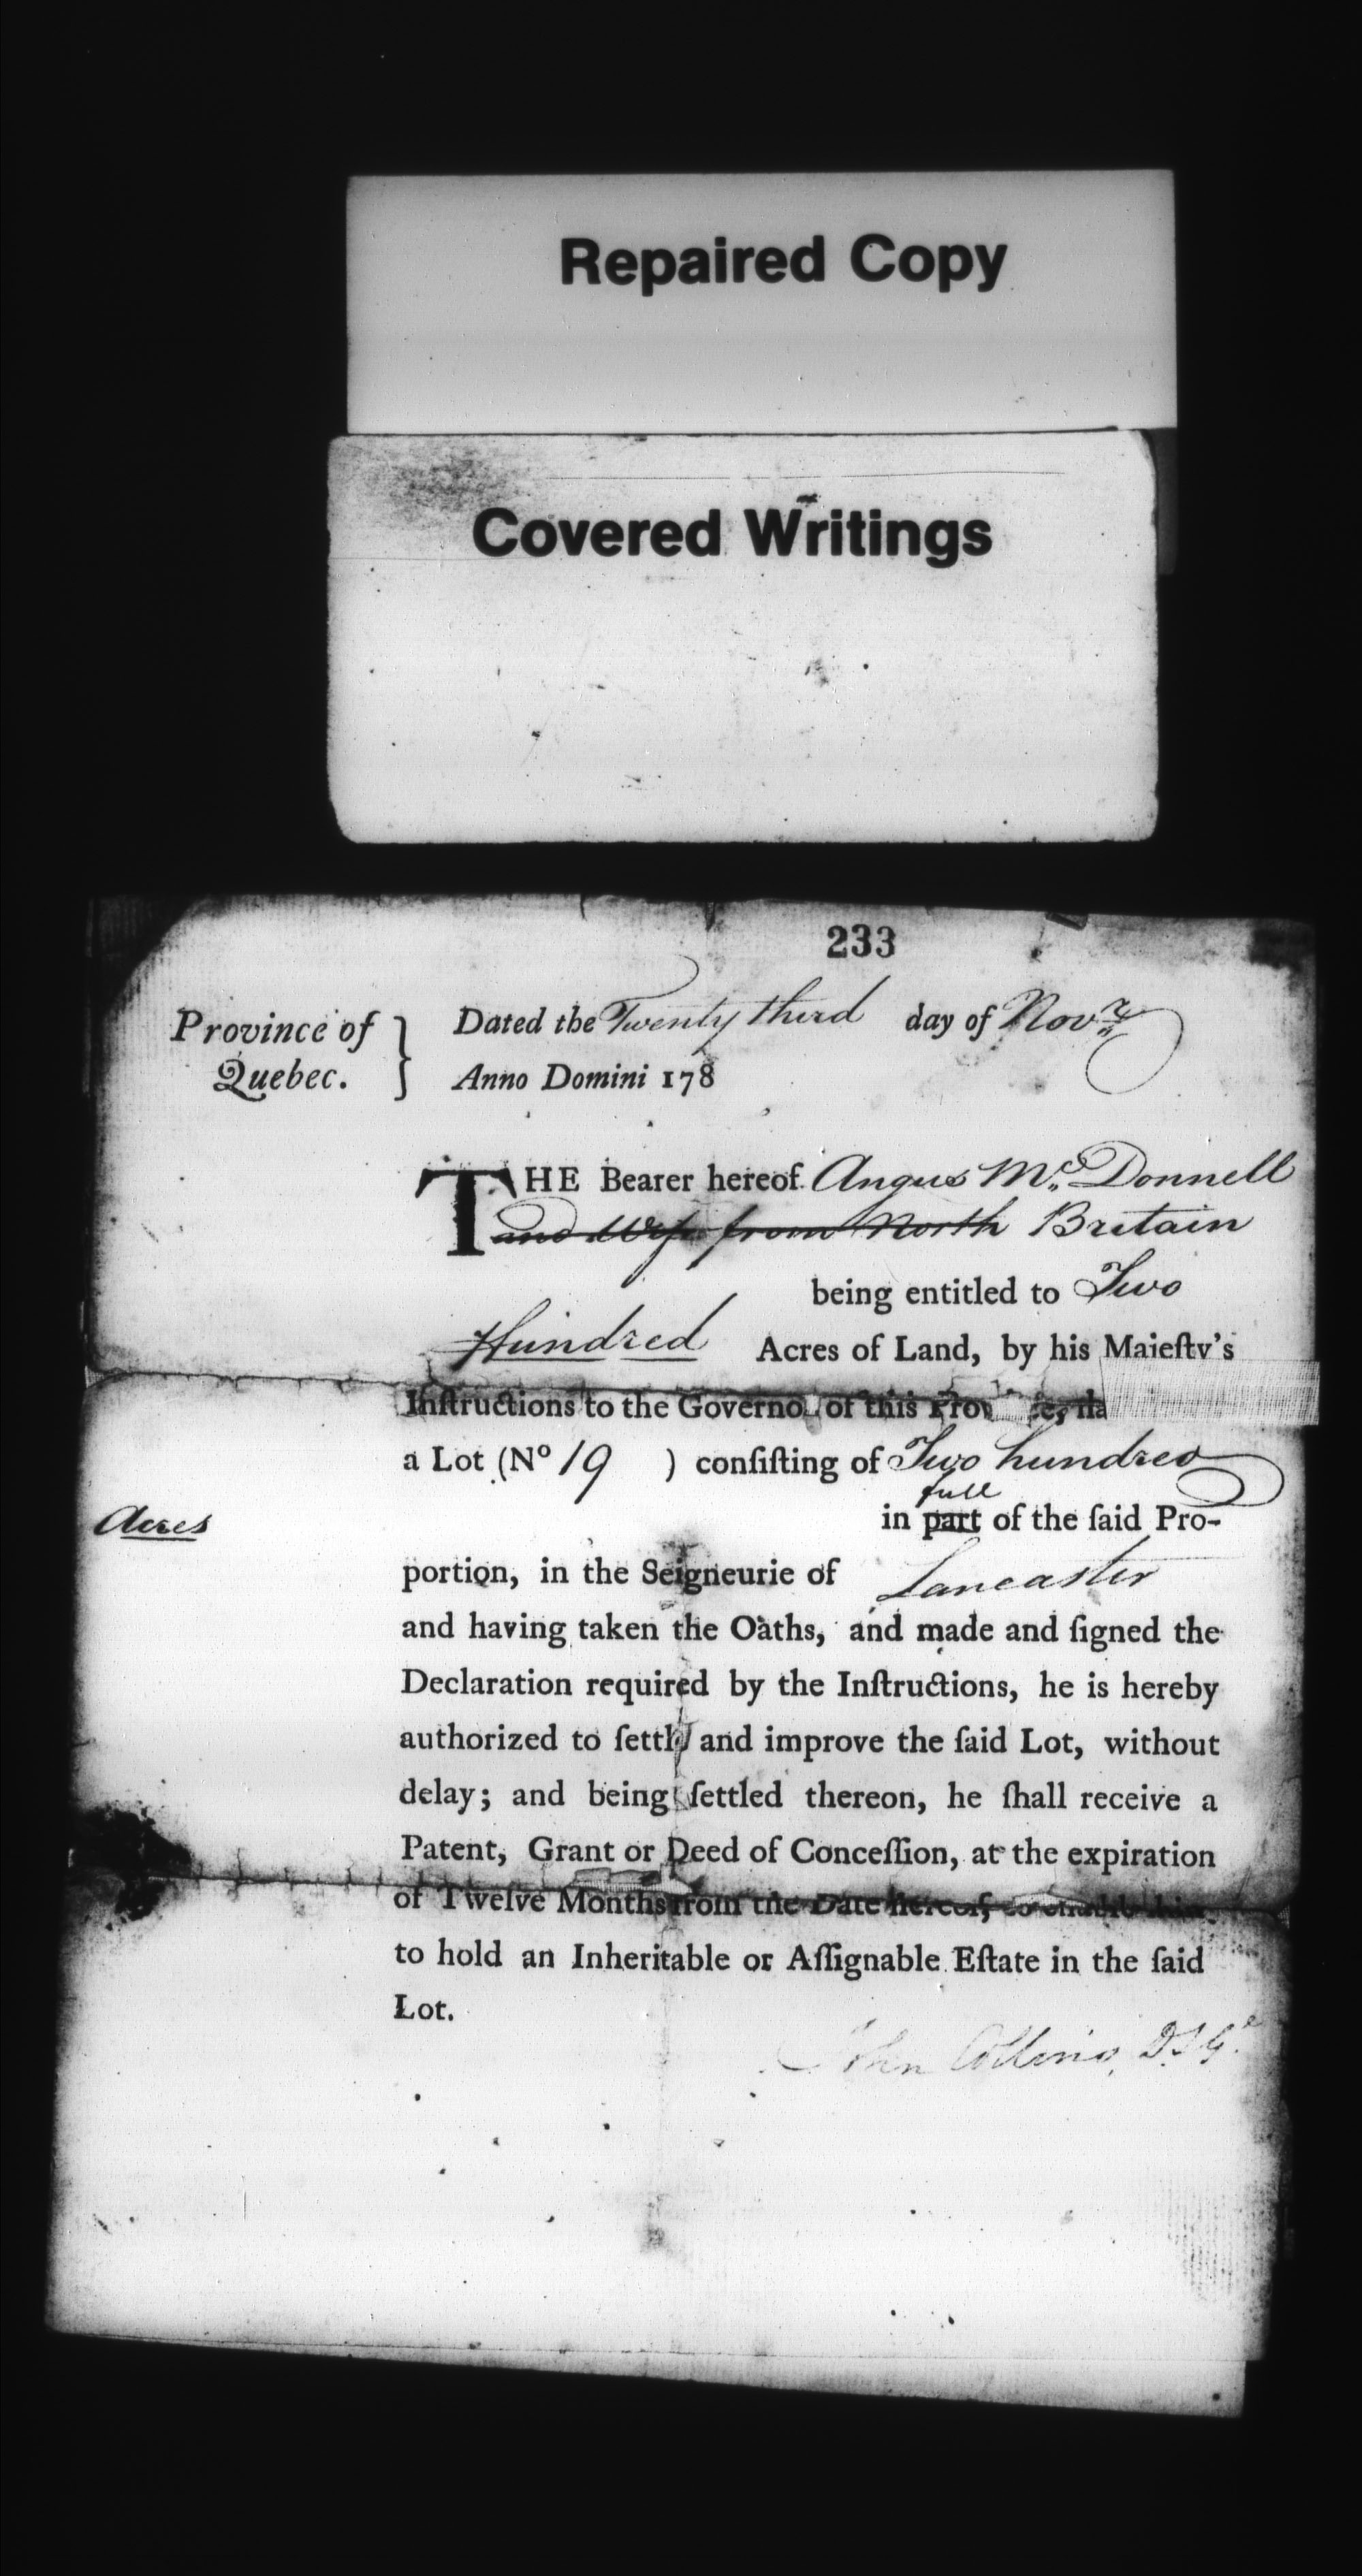 Repaired Copy
Covered Writings
233
Province of } Dated the Twenty third day of Novr
Quebec. } Anno Domini 178
THE Bearer hereof Angus Mc Donnell
and Wife from North Britain
being entitled to Two
Hundred Acres of Land, by his Majeſty's
Inſtructions to the Governo of this Pro
a Lot (No 19 ) conſiſting of Two hundred
full
Acres in part of the ſaid Pro-
portion, in the Seigneurie of Lancaster
and having taken the Oaths, and made and ſigned the
Declaration required by the Inſtructions, he is hereby
authorized to ſettle and improve the ſaid Lot, without
delay; and being ſettled thereon, he ſhall receive a
Patent, Grant or Deed of Conceſſion, at the expiration
of Twelve Months from the Date hereof, to enable him
to hold an Inheritable or Aſſignable Eſtate in the ſaid
Lot.
John Collins, D.S.G.